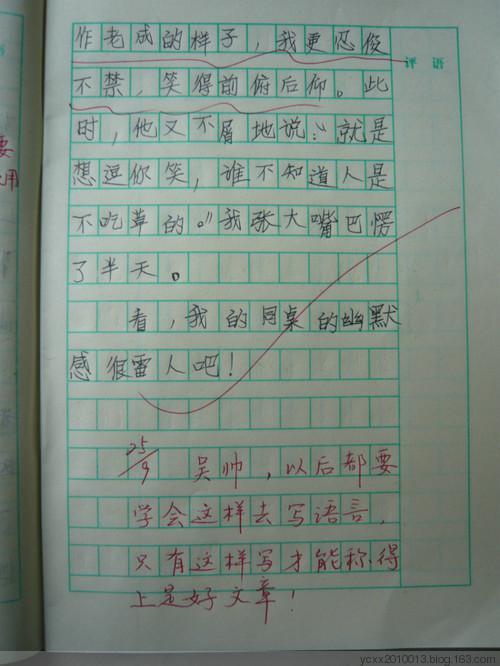 作老成的样子，我更忍俊
评语
不禁，笑得前俯后仰。此
时，他又不屑地说：“就是
想逗你笑，谁不知道人是
不吃草的。”我张大嘴巴愣
了半天。
看，我的同桌的幽默
感很雷人吧！
25/9 吴帅，以后都要
学会这样去写语言，
只有这样写才能称得
上是好文章！
要
用
ycxx2010013.blog.163.com